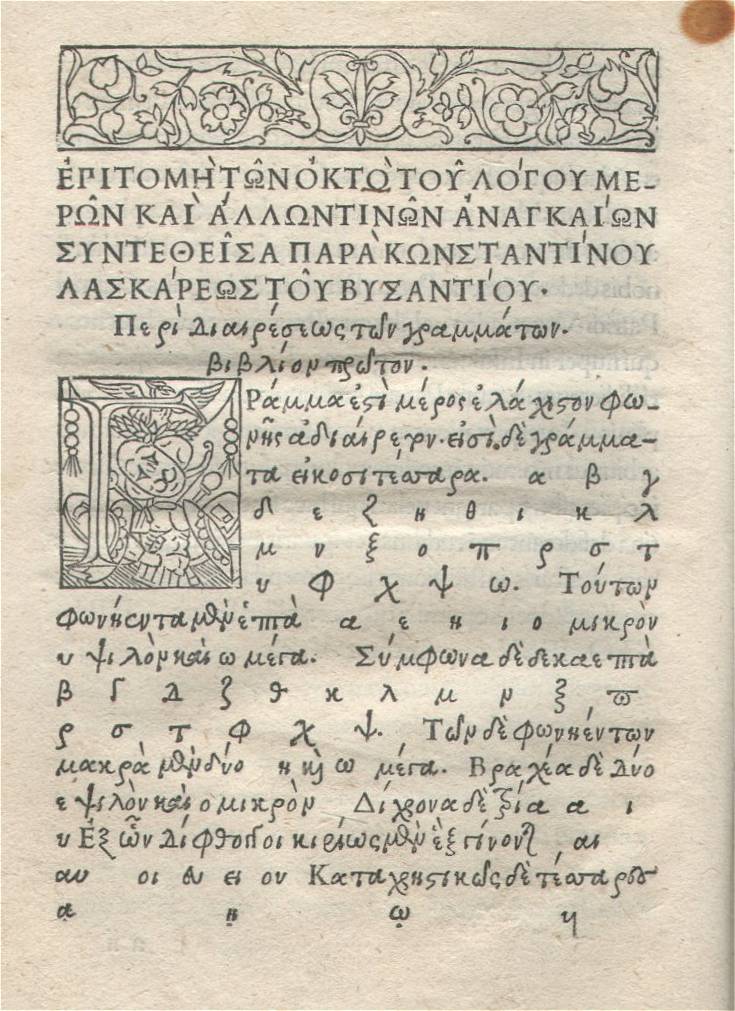 ἘΠΙΤΟΜῊ ΤΩ͂Ν ὈΚΤῺ ΤΟΥ͂ ΛΌΓΟΥ ΜΕ-
ΡΩ͂Ν ΚΑῚ ἌΛΛΩΝ ΤΙΝΩ͂Ν ἈΝΑΓΚΑΊΩΝ
ΣΥΝΤΕΘΕΙ͂ΣΑ ΠΑΡᾺ ΚΩΝΣΤΑΝΤΊΝΟΥ
ΛΑΣΚΆΡΕΩΣ ΤΟΥ͂ ΒΥΖΑΝΤΊΟΥ.
Περὶ Διαιρέσεως τῶν γραμμάτων.
βιβλίον πρῶτον.
Γράμμα ἐστὶ μέρος ἐλάχιστον φω-
νῆς ἀδιαίρετον. εἰσὶ δὲ γράμμα-
τα εἰκοσιτέσσαρα. α β γ
δ ε ζ η θ ι κ λ
μ ν ξ ο π ρ σ τ
υ φ χ ψ ω. Τούτων
φωνήεντα μὲν ἑπτὰ α ε η ι ο μικρὸν
υ ψιλὸν καὶ ω μέγα. Σύμφωνα δὲ δεκαεπτὰ
β γ δ ζ θ κ λ μ ν ξ π
ρ σ τ φ χ ψ. Τῶν δὲ φωνηέντων
μακρὰ μὲν δύο η καὶ ω μέγα. Βραχέα δὲ δύο
ε ψιλὸν καὶ ο μικρὸν Δίχρονα δὲ τρία α ι
υ Ἐξ ὧν δίφθογγοι κυρίως μὲν ἓξ γίνονται αι
αυ οι ευ ει ου Καταχρηστικῶς δὲ τέσσαρες
ᾳ ῃ ῳ υι